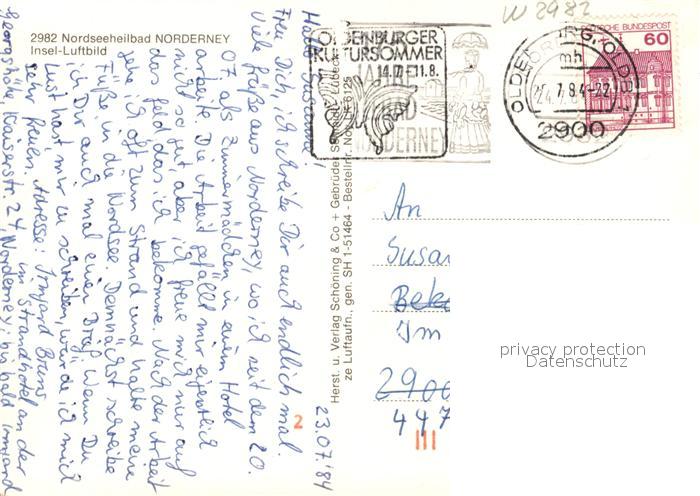 2982 Nordseeheilbad NORDERNEY
Insel-Luftbild
W 2982
OLDENBURGER
KULTURSOMMER
14.7.-11.8.
NORDERNEY
OLDENBURG, OLDB
mh
24.7.84-22
2900
DEUTSCHE BUNDESPOST
60
23.07.84
Hallo Susanne!
Freu Dich, ich schreibe Dir auch endlich mal.
Viele Grüße aus Norderney, wo ich seit dem 20.
07. als Zimmermädchen in einem Hotel
arbeite. Die Arbeit gefällt mir eigentlich
nicht so gut, aber ich freue mich nur auf
das Geld das ich bekomme. Nach der Arbeit
gehe ich oft zum Strand und halte meine
Füße in die Nordsee. Demnächst schreibe
ich Dir auch mal einen Brief. Wenn Du
Lust hast, mir zu schreiben, würde ich mich
sehr freuen. Adresse: Irmgard Bruns
im Strandhotel an der
Georgshöhe, Kaiserstr. 24, Norderney, bis bald Irmgard
2
Herst. u. Verlag Schöning & Co + Gebrüder Lübeck
ze Luftaufn., gen. SH 1-51464 - Bestellnr. Nor 6125
An
Susan
Beke
Im
2900
447
privacy protection
Datenschutz